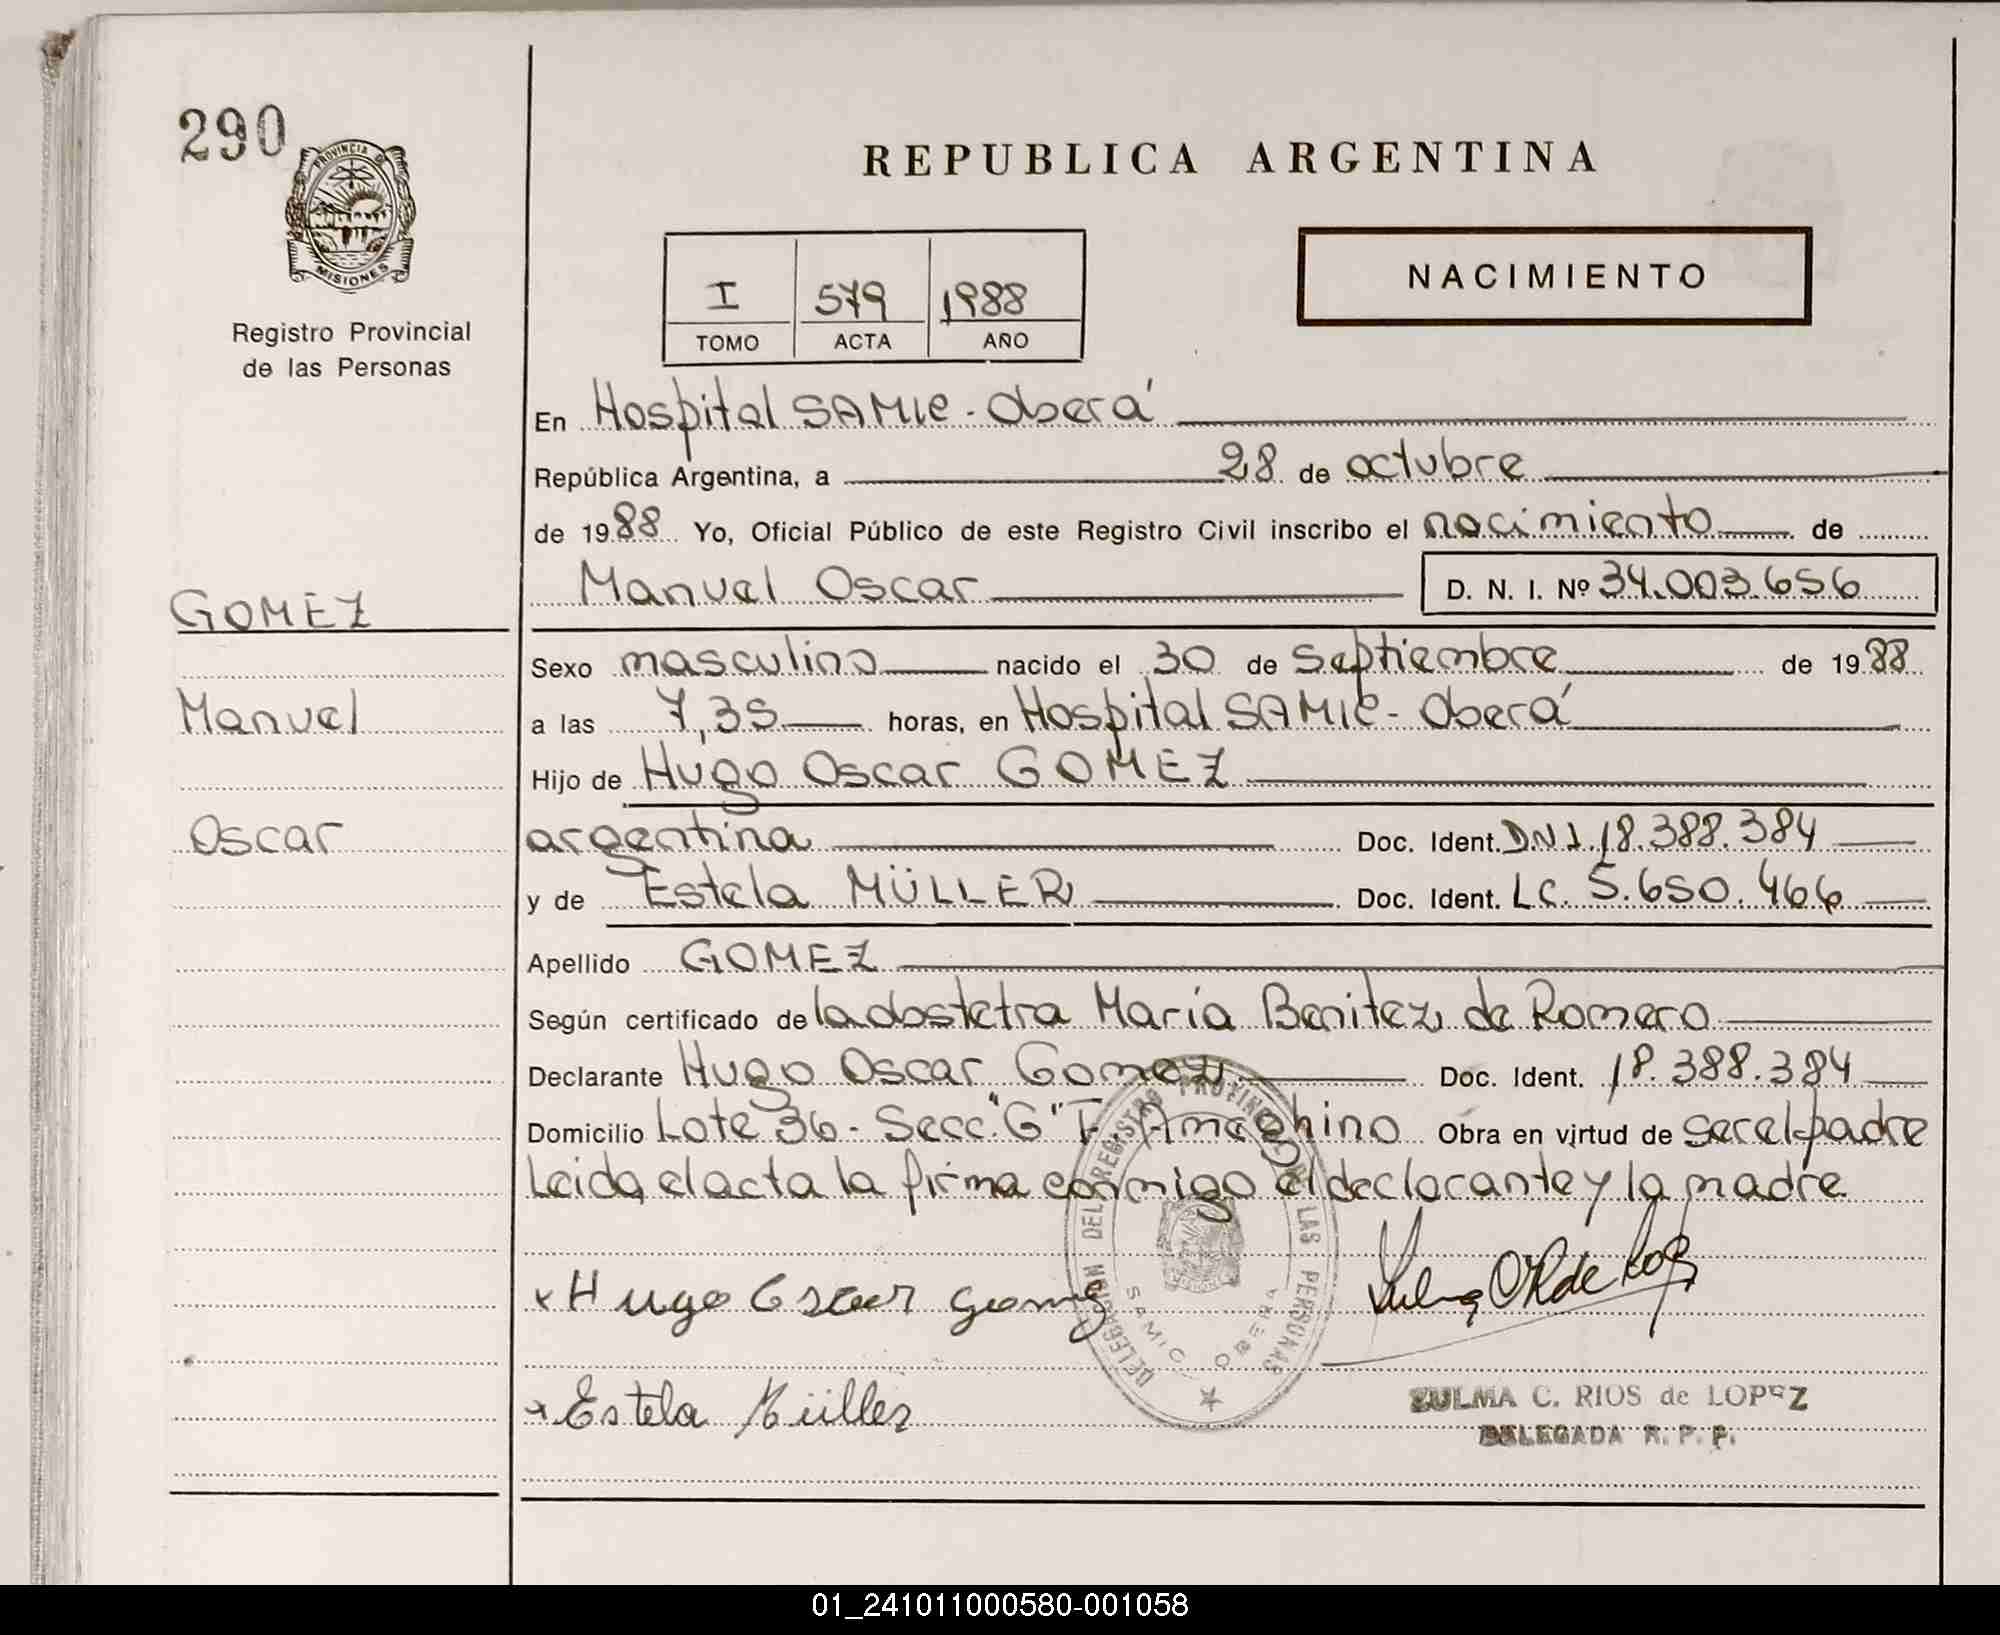 290
PROVINCIA DE
MISIONES
Registro Provincial
de las Personas
GOMEZ
Manuel
Oscar
REPUBLICA ARGENTINA
I 579 1988
TOMO ACTA AÑO
NACIMIENTO
En Hospital SAMIC - Oberá
República Argentina, a 28 de octubre
de 1988 Yo, Oficial Público de este Registro Civil inscribo el nacimiento de
Manuel Oscar D. N. I. Nº 34.003.656
Sexo masculino nacido el 30 de septiembre de 1988
a las 7,35 horas, en Hospital SAMIC - Oberá
Hijo de Hugo Oscar GOMEZ
argentina Doc. Ident. DNI. 18.388.384
y de Estela MÜLLER Doc. Ident. LC. 5.650.466
Apellido GOMEZ
Según certificado de la obstetra María Benitez de Romero
Declarante Hugo Oscar Gomez Doc. Ident. 18.388.384
Domicilio Lote 36 - Secc. "G" F. Ameghino Obra en virtud de ser el padre
Leida el acta la firma conmigo el declarante y la madre
x Hugo Oscar Gomez
x Estela Müller
DELEGACION DEL REGISTRO PROVINCIAL DE LAS PERSONAS
SAMIC OBERA
ZULMA C. RIOS de LOPEZ
DELEGADA R. P. P.
01_241011000580-001058